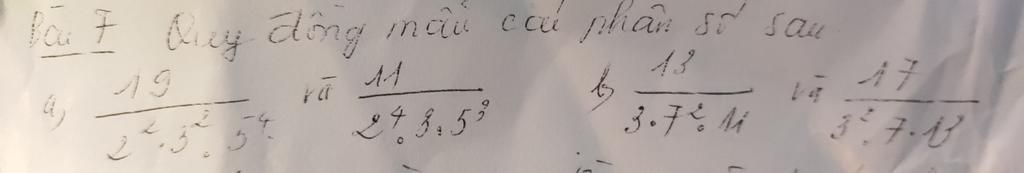 Bài 7 Quy đồng mẫu các phân số sau
a, 19/(2².3².5⁴) và 11/(2⁴.3.5³) b, 13/(3.7².11) và 17/(3².7.13)